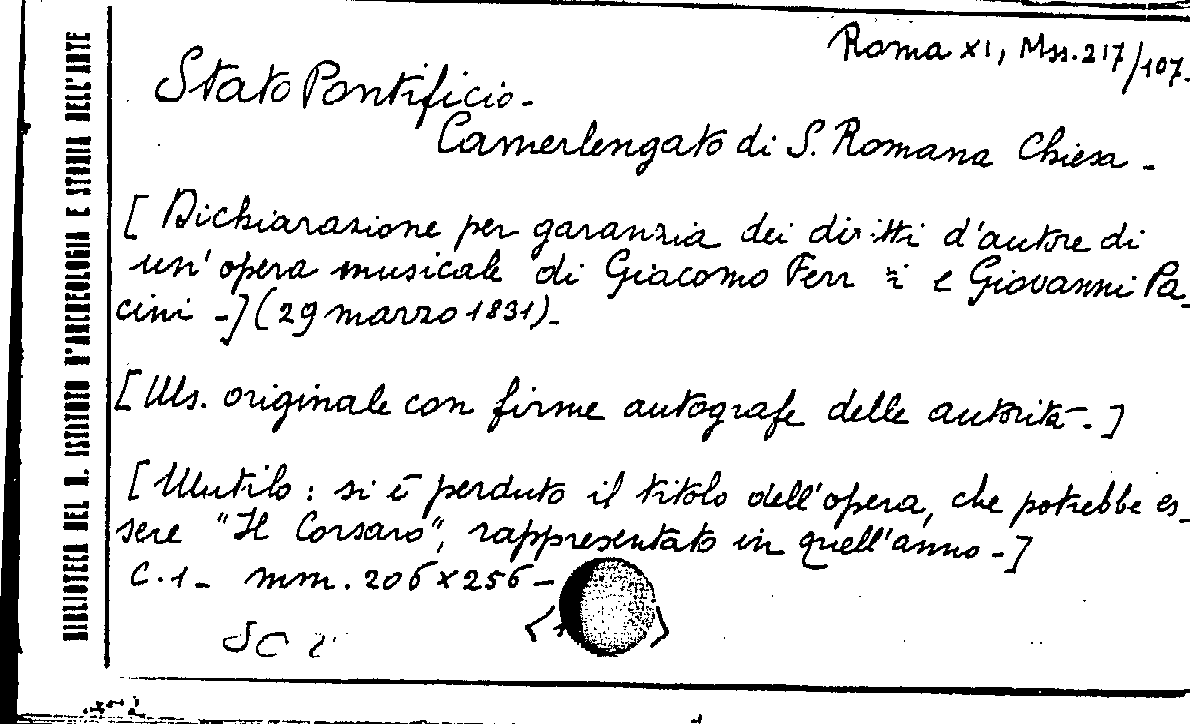 BIBLIOTECA DEL R. ISTITUTO D'ARCHEOLOGIA E STORIA DELL'ARTE
Roma XI, Mss. 217/107.
Stato Pontificio -
Camerlengato di S. Romana Chiesa -
[Dichiarazione per garanzia dei diritti d'autore di
un'opera musicale di Giacomo Ferr i e Giovanni Pa-
cini -] (29 marzo 1831) -
[Ms. originale con firme autografe delle autorità -.]
[Mutilo: si è perduto il titolo dell'opera, che potrebbe es-
sere "Il Corsaro", rappresentato in quell'anno -]
C. 1 - mm. 206 x 256 -